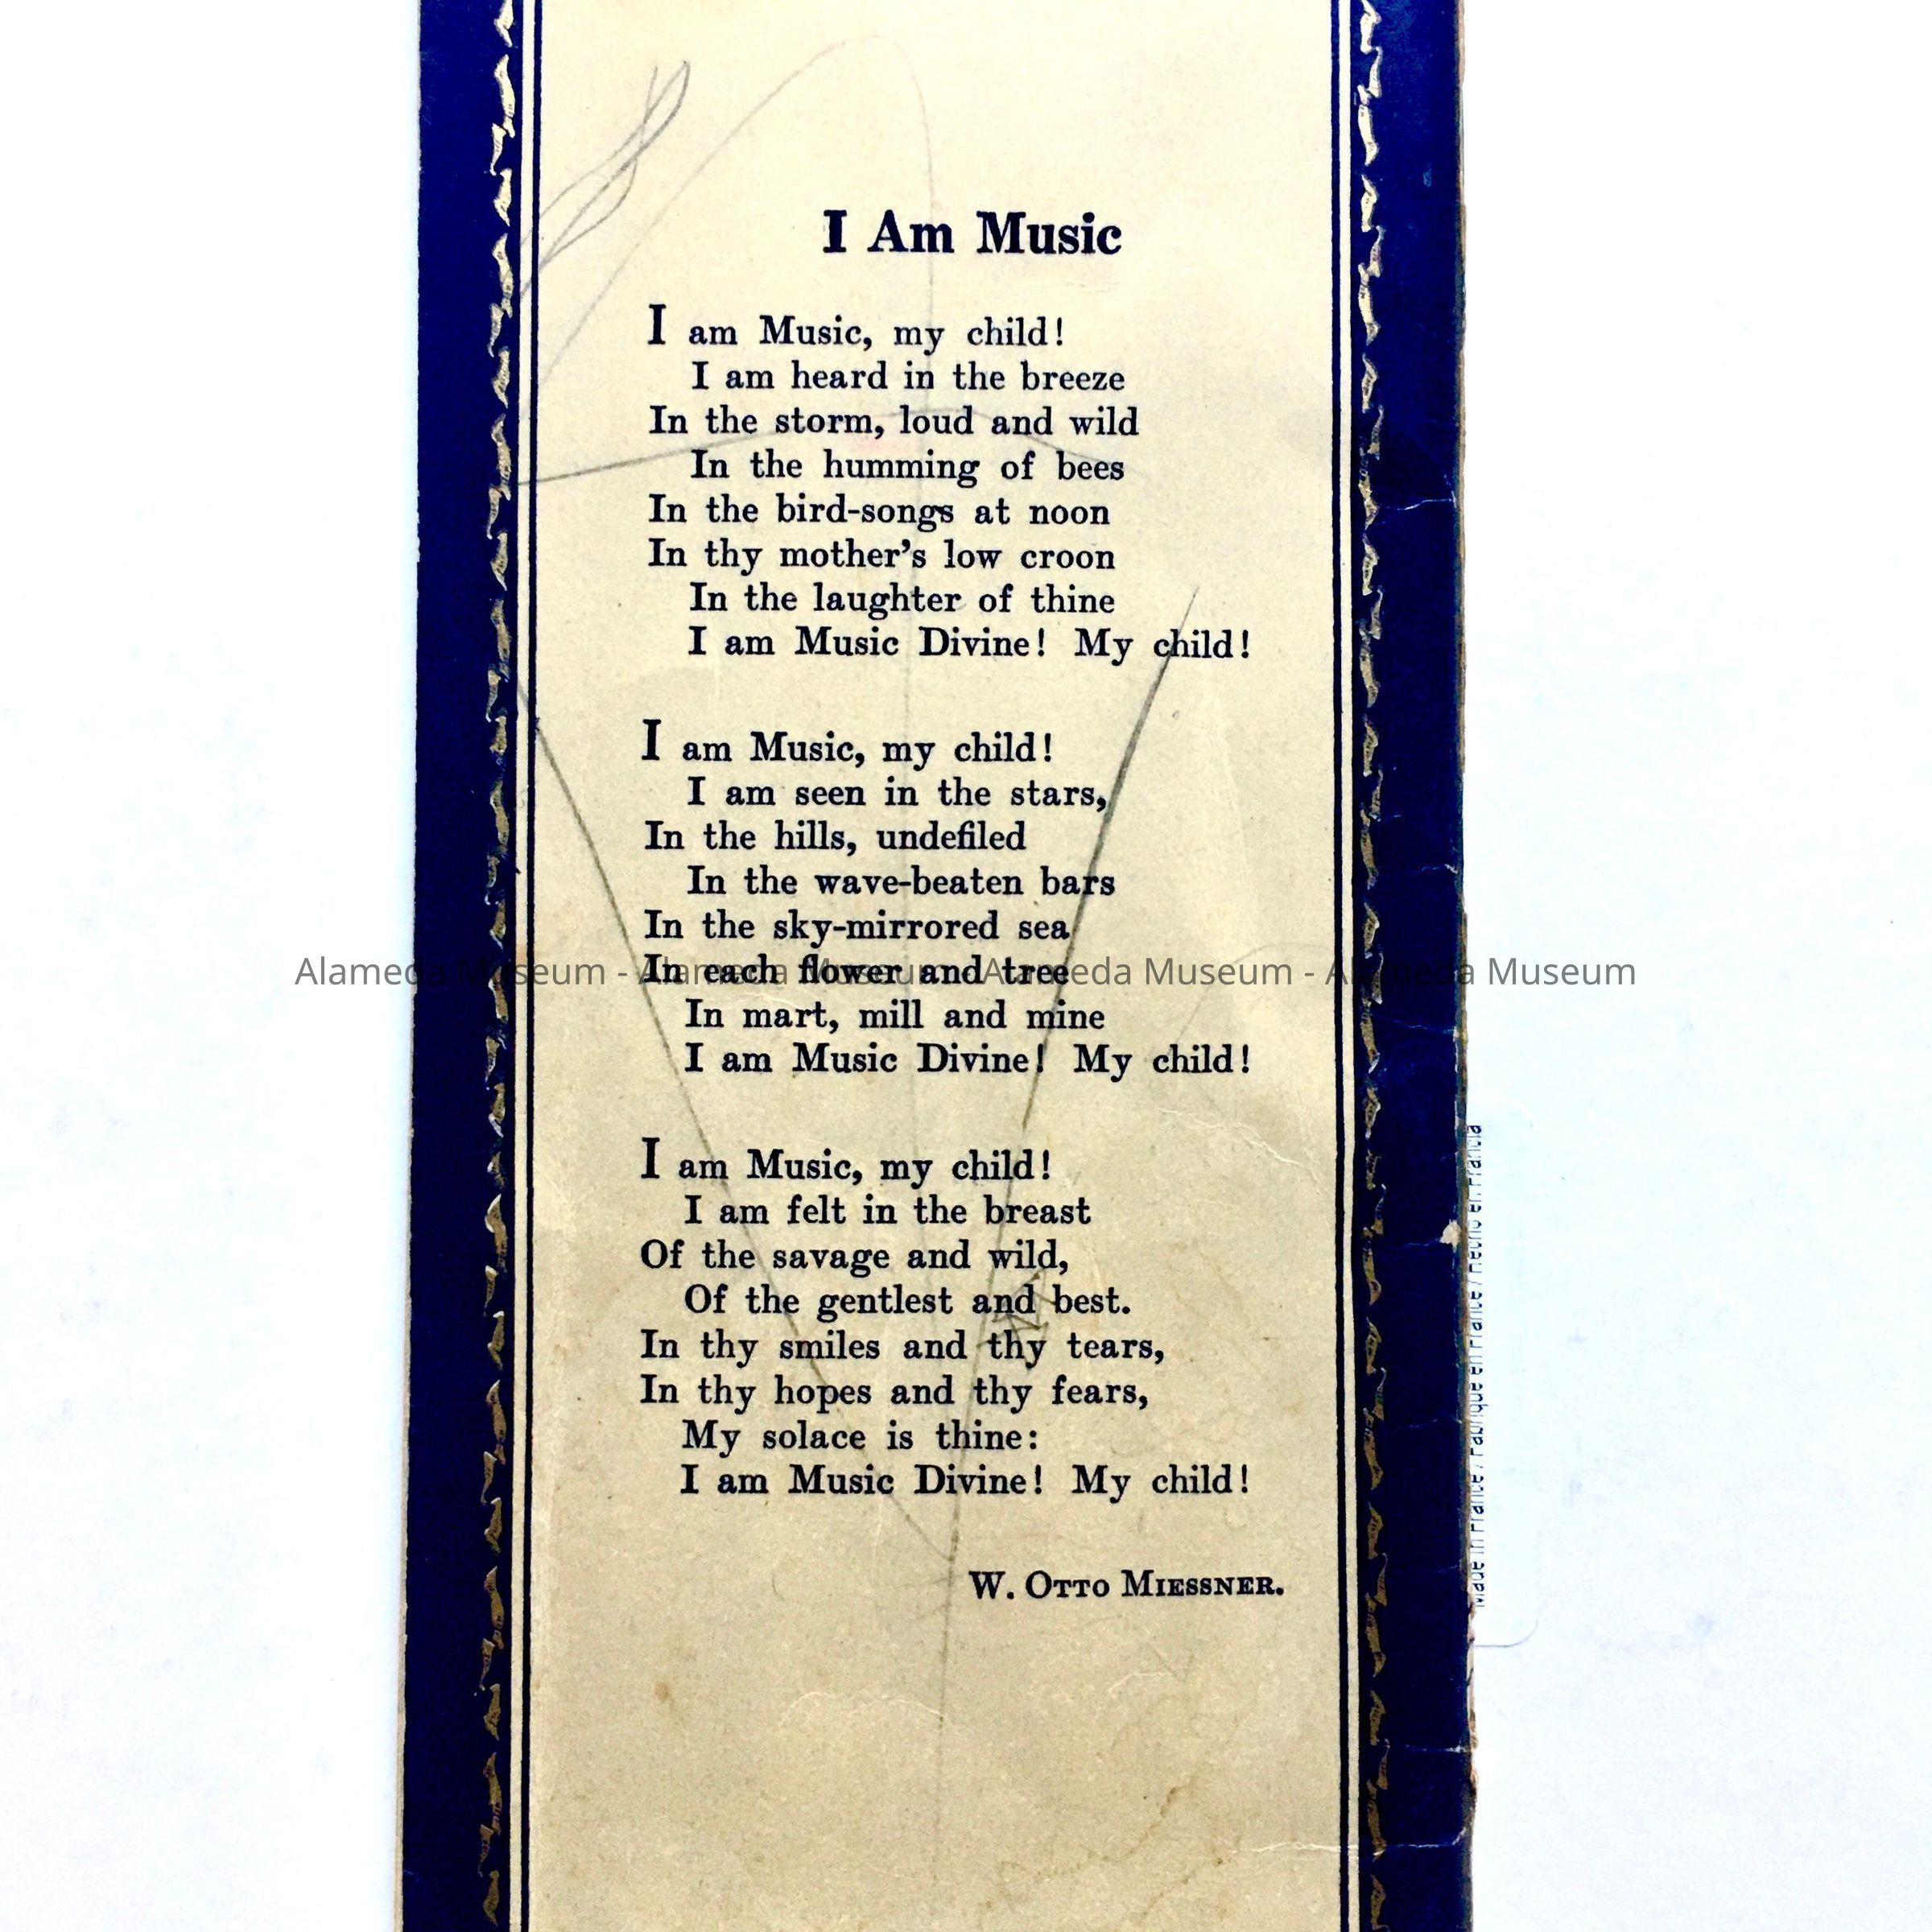 I Am Music
I am Music, my child!
I am heard in the breeze
In the storm, loud and wild
In the humming of bees
In the bird-songs at noon
In thy mother's low croon
In the laughter of thine
I am Music Divine! My child!
I am Music, my child!
I am seen in the stars,
In the hills, undefiled
In the wave-beaten bars
In the sky-mirrored sea
In each flower and tree
Alameda Museum - Alameda Museum - Alameda Museum - Alameda Museum
In mart, mill and mine
I am Music Divine! My child!
I am Music, my child!
I am felt in the breast
Of the savage and wild,
Of the gentlest and best.
In thy smiles and thy tears,
In thy hopes and thy fears,
My solace is thine:
I am Music Divine! My child!
W. OTTO MIESSNER.
Made in France / Fabriqué en France / Hecho en Francia